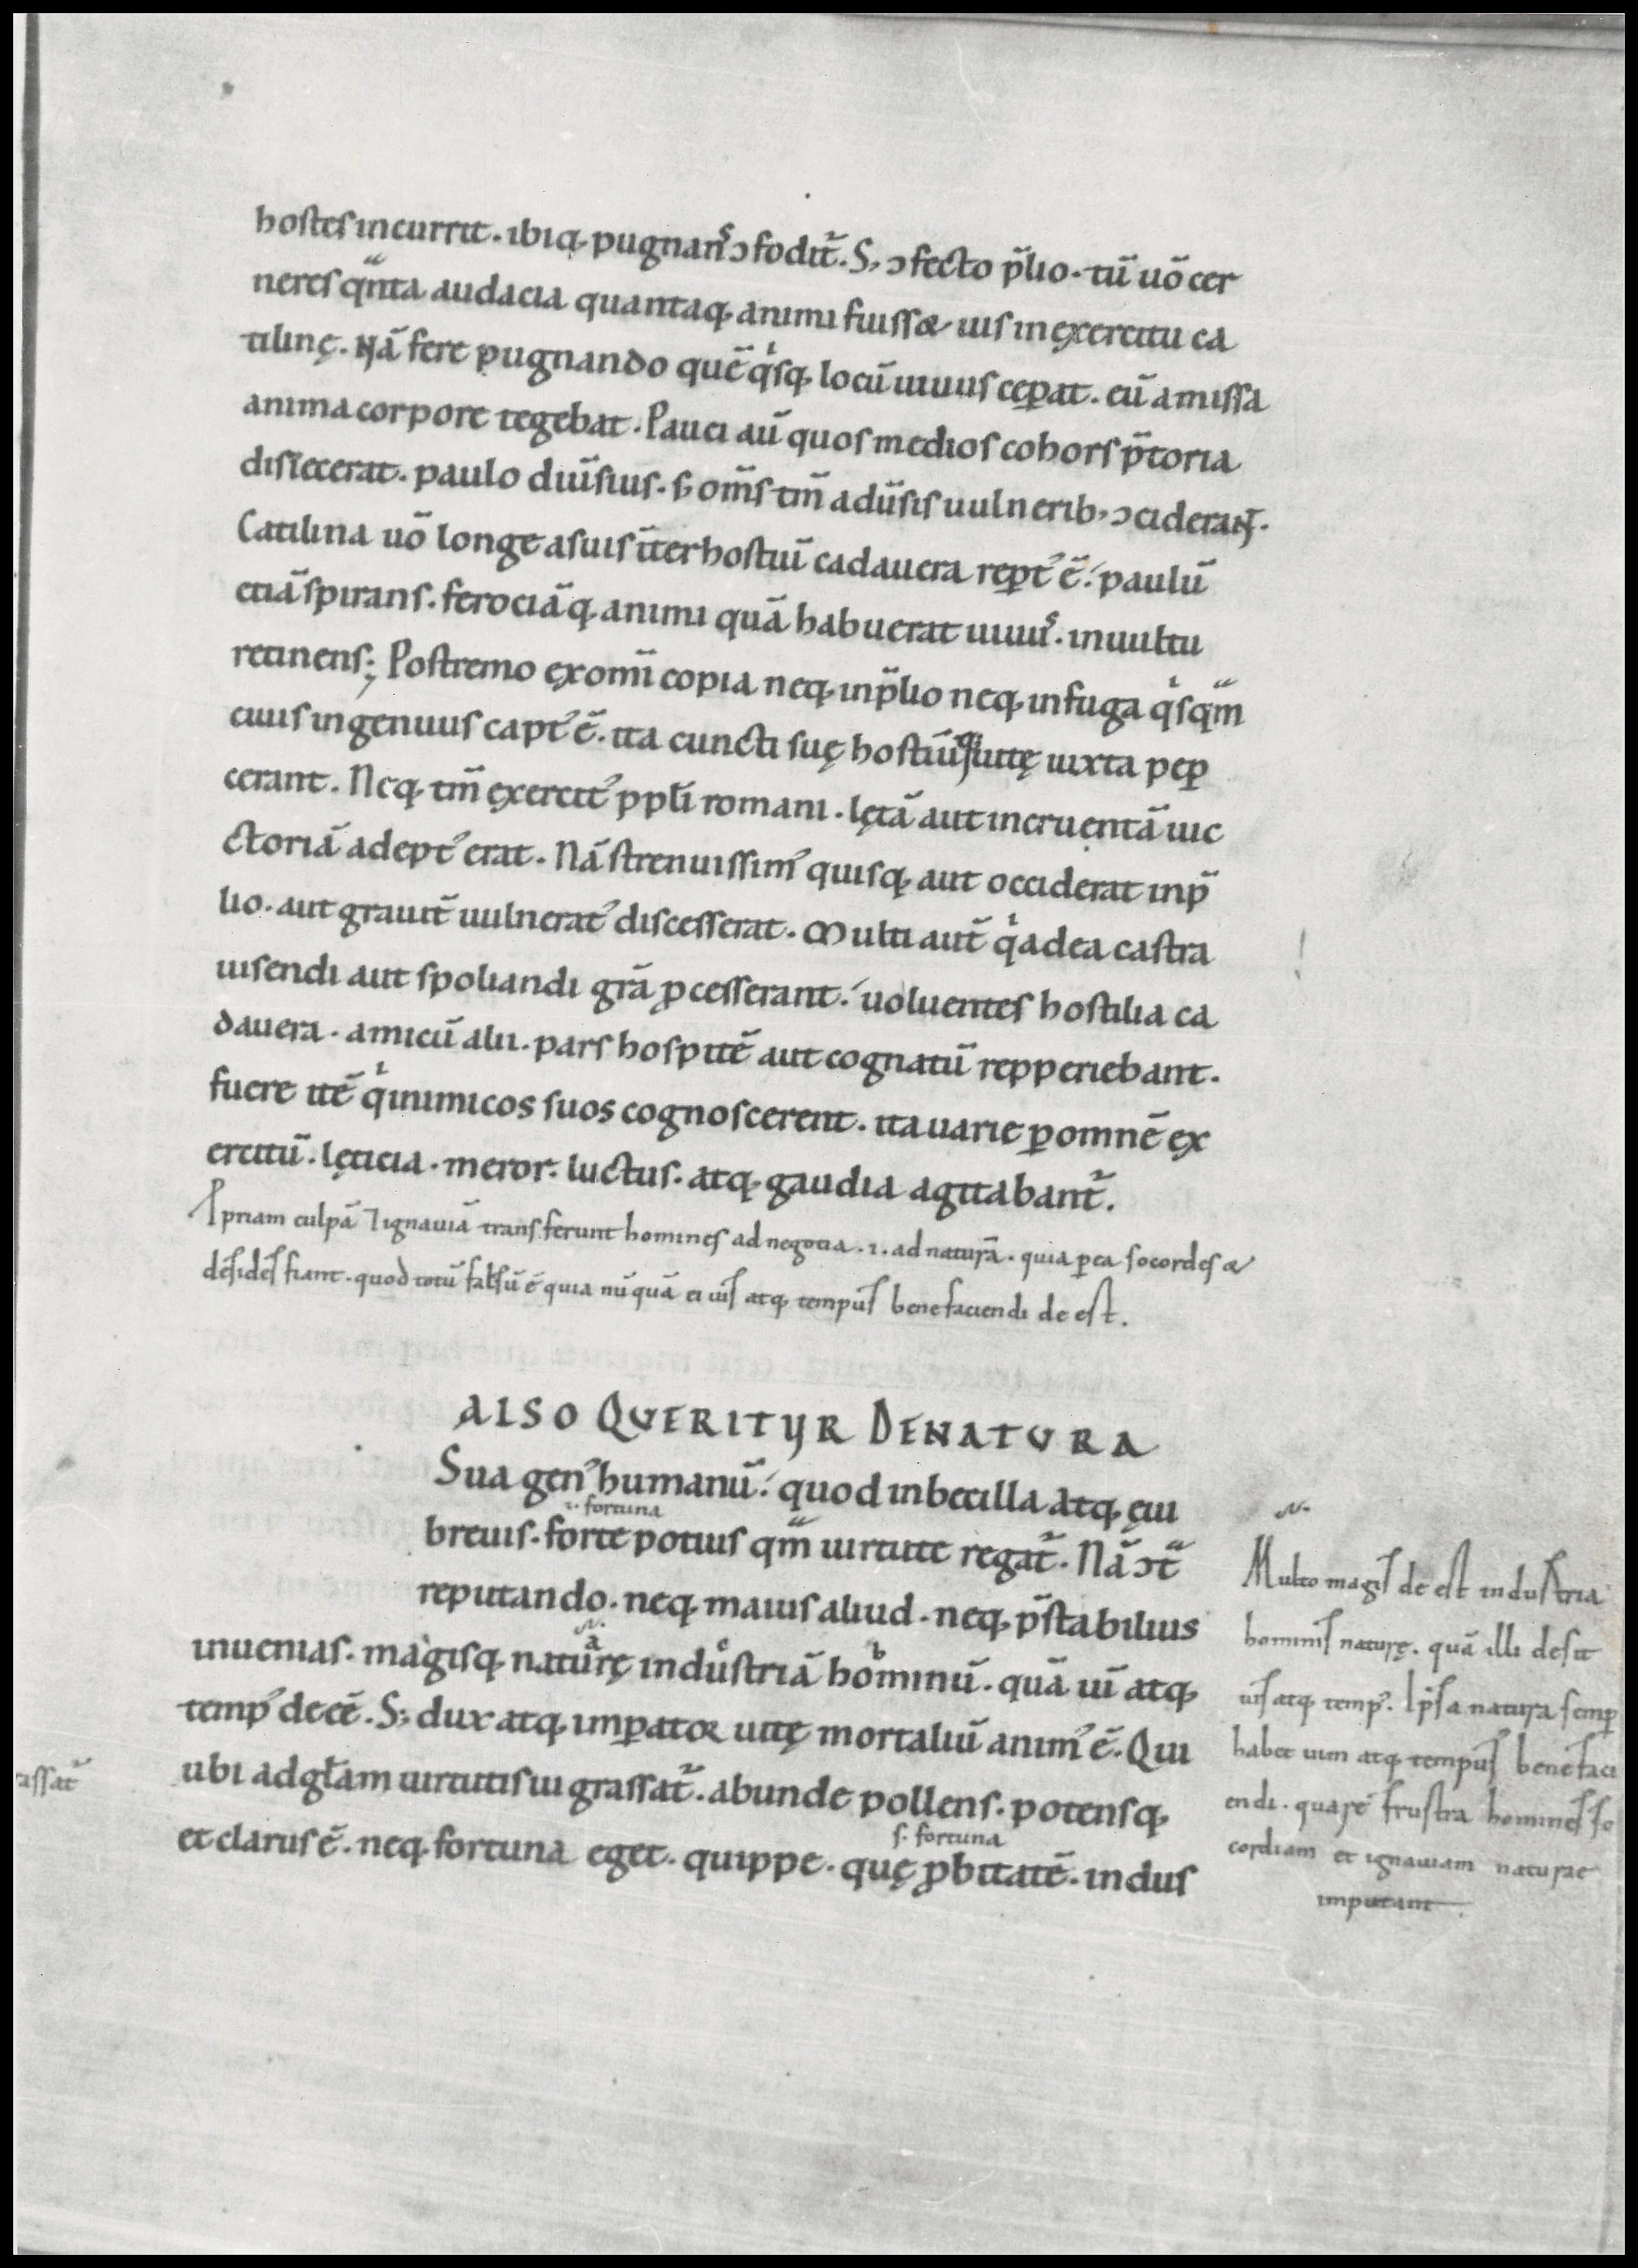 hostes incurrit. ibiq; pugnanˢ ɔfodit᷑. S; ɔfecto p̄lio. tū uō cer
neres qᵐnta audacia quantaq; animi fuisset uis in exercitu ca
tilinę. Nā fere pugnando quē qⁱsq; locū uiuus cep̱at. eū amissa
anima corpore tegebat. Pauci aū quos medios cohors p̄toria
disiecerat. paulo diu̅sius. s; om̅s tm̅ adu̅sis uulnerib; ɔciderant.
Catilina uō longe a suis īter hostiū cadauera rep̱t᾿ ē. paulū
etiā spirans. ferociāq; animi quā habuerat uiuuˢ. in uultu
retinens; Postremo ex omi̅ copia neq; in p̄lio neq; in fuga qⁱsqᵐ
ciuis ingenuus capt᾿ ē. ita cuncti suę hostiūq; uitę iuxta pep̱
cerant. Neq; tm̅ exercit᾿ ppl̅i romani. lętā aut incruentā uic
ctoriā adept᾿ erat. Nā strenuissim᾿ quisq; aut occiderat in p̄
lio. aut grauit᷑ uulnerat᾿ discesserat. Multi aut̄ qⁱ ad ea castra
uisendi aut spoliandi gr̄a p̱cesserant. uoluentes hostilia ca
dauera. amicū alii. pars hospitē aut cognatū repperiebant.
fuere itē qⁱ inimicos suos cognoscerent. ita uarie p̱ omnē ex
ercitū. lęticia. meror. luctus. atq; gaudia agitabant᷑.
Ppriam culpā ⁊ ignauiā transferunt homines ad negocia. .i. ad naturā. quia p̱ ea socordes et
desides fiant. quod totū falsū ē quia nūquā ei uis atq; tempus benefaciendi de est.
ALSO QUERITUR DE NATURA
Sua gen᾿ humanū. quod inbecilla atq; ęui
.i. fortuna
breuis. forte potius qᵐ uirtute regat᷑. Nā ɔtᵃ
reputando. neq; maius aliud. neq; p̄stabilius
inuenias. magisq; naturę industriā hominū. quā uī atq;
temp᾿ deēē. S; dux atq; imp̱ator uitę mortaliū anim᾿ ē. Qui
ubi ad gl̅am uirtutis ui grassat᷑. abunde pollens. potensq;
et clarus ē. neq; fortuna eget. quippe. quę p̱bitatē. indus
s. fortuna
Multo magis de est industria
hominis naturę. quā illi desit
uis atq; temp᾿. Ipsa natura semp̱
habet uim atq; tempus benefaci
endi. quare frustra homines so
cordiam et ignauiam naturae
imputant.
assat᷑